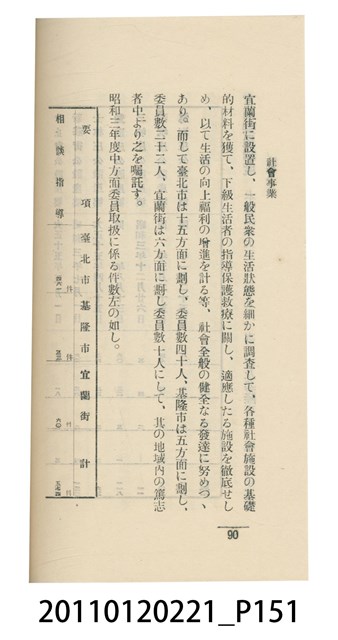 社會事業
宜蘭街に設置し、一般民衆の生活狀態を細かに調查して、各種社會施設の基礎
的材料を獲て、下級生活者の指導保護救療に關し、適應したる施設を徹底せし
め、以て生活の向上福利の增進を計る等、社會全般の健全なる發達に努めつゝ
あり。而して臺北市は十五方面に劃し、委員數四十人、基隆市は五方面に劃し、
委員數二十二人、宜蘭街は六方面に劃し委員數十人にして、其の地域內の篤志
者中より之を囑託す。
昭和三年度中方面委員取扱に係る件數左の如し。
要項 臺北市 基隆市 宜蘭街 計
相談指導
90
20110120221_P151